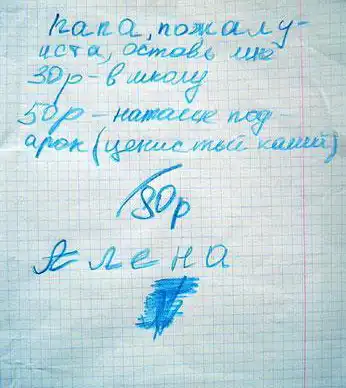 папа, пожалу-
йста, оставь мне
30р - в школу
50р - наташе под-
арок (ценистый камий)
80р
Алена